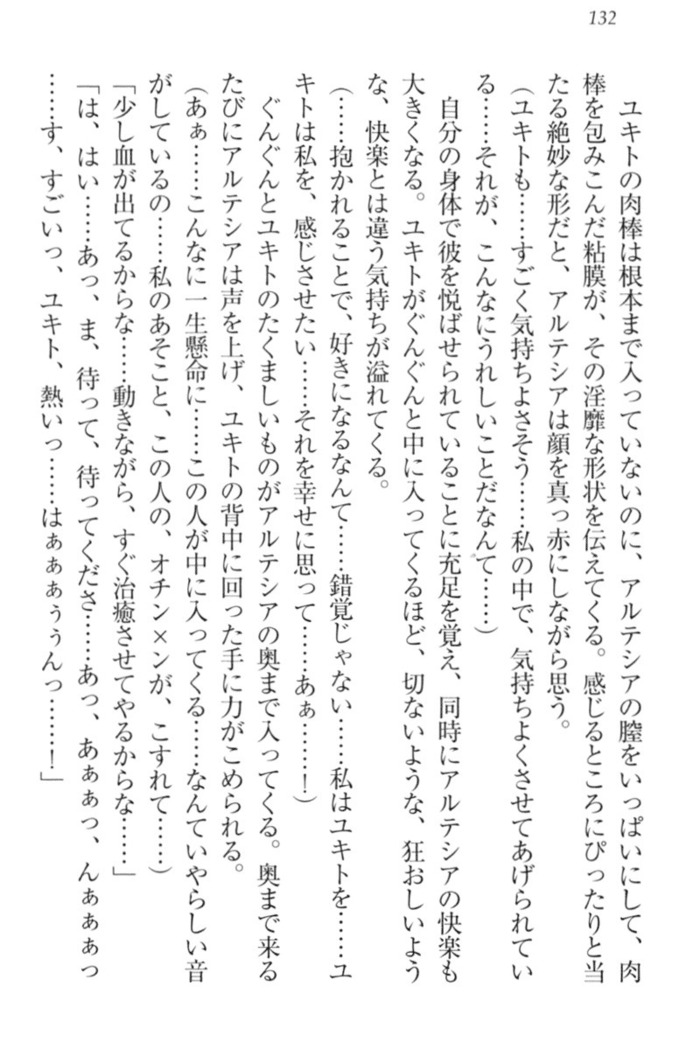 132
ユキトの肉棒は根本まで入っていないのに、アルテシアの膣をいっぱいにして、肉
棒を包みこんだ粘膜が、その淫靡な形状を伝えてくる。感じるところにぴったりと当
たる絶妙な形だと、アルテシアは顔を真っ赤にしながら思う。
(ユキトも……すごく気持ちよさそう……私の中で、気持ちよくさせてあげられてい
る……それが、こんなにうれしいことだなんて……)
自分の身体で彼を悦ばせられていることに充足を覚え、同時にアルテシアの快楽も
大きくなる。ユキトがぐんぐんと中に入ってくるほど、切ないような、狂おしいよう
な、快楽とは違う気持ちが溢れてくる。
(……抱かれることで、好きになるなんて……錯覚じゃない……私はユキトを……ユ
キトは私を、感じさせたい……それを幸せに思って……あぁ……!)
ぐんぐんとユキトのたくましいものがアルテシアの奥まで入ってくる。奥まで来る
たびにアルテシアは声を上げ、ユキトの背中に回った手に力がこめられる。
(あぁ……こんなに一生懸命に……この人が中に入ってくる……なんていやらしい音
がしているの……私のあそこと、この人の、オチン×ンが、こすれて……)
「少し血が出てるからな……動きながら、すぐ治癒させてやるからな……」
「は、はい……あっ、ま、待って、待ってくださ……あっ、あぁぁっ、んぁぁぁっ
……す、すごいっ、ユキト、熱いっ……はぁぁぁぅぅんっ……!」